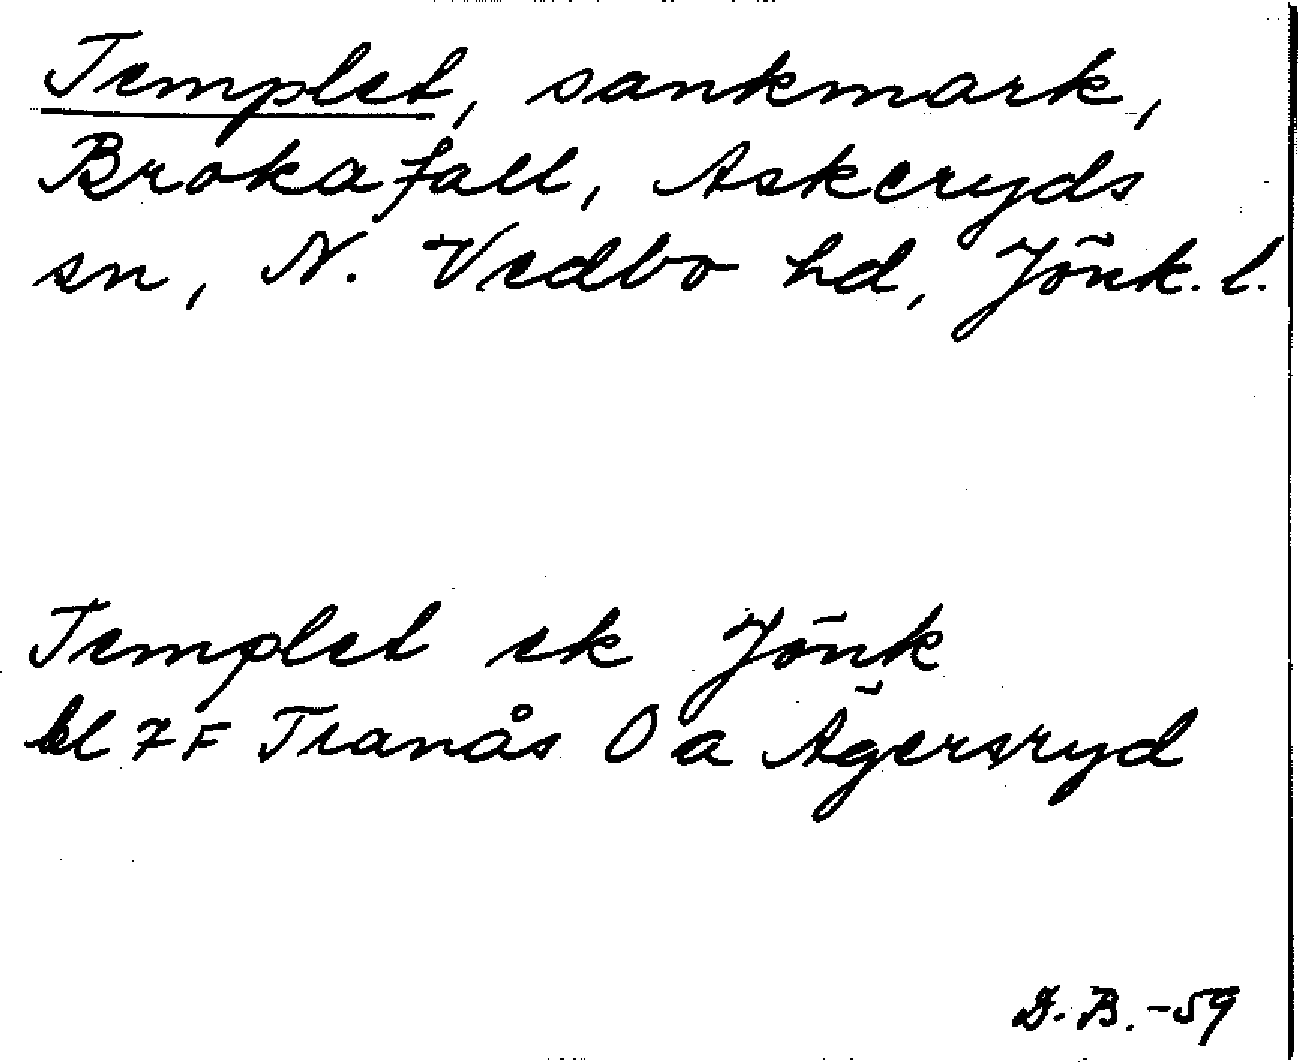 Templet, sankmark,
Brokafall, Askeryds
sn, N. Vedbo hd, Jönk. l.
Templet ek Jönk
bl 7F Tranås O a Ägersryd
D.B. -59